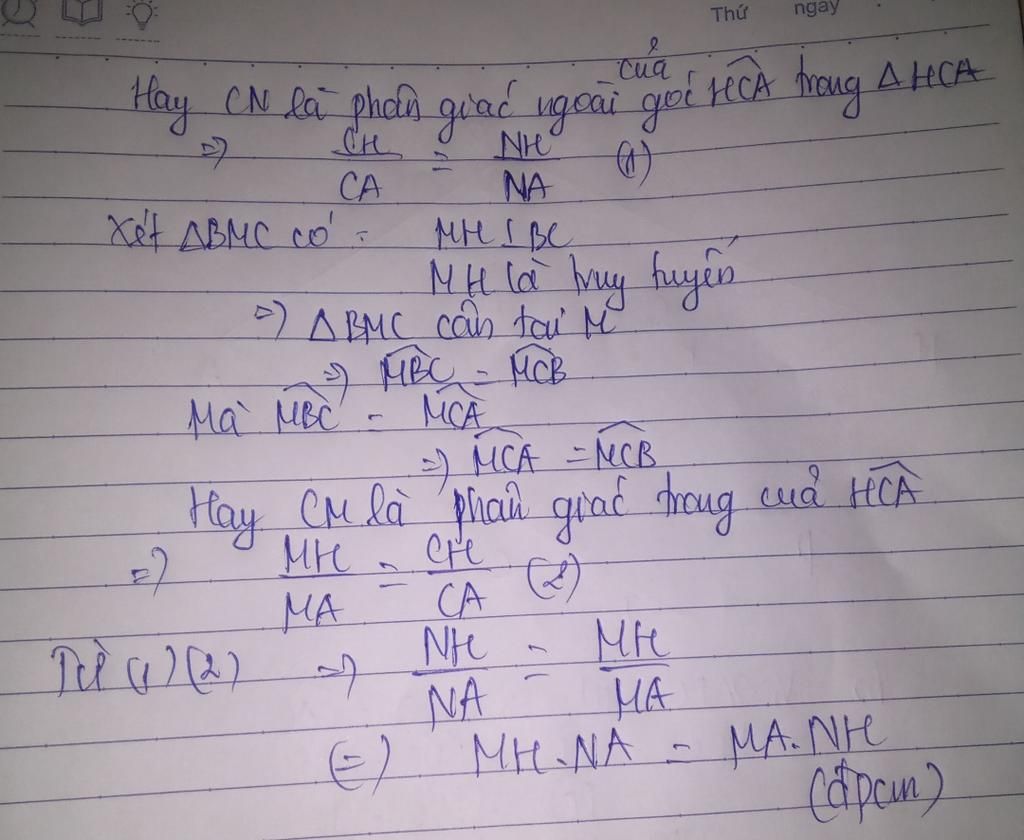 Thứ ngày
của
Hay CN là phân giác ngoài góc HCA trong ΔHCA
=> CH/CA = NH/NA (1)
Xét ΔBMC có: MH ⊥ BC
MH là truy tuyến
=> ΔBMC cân tại M
=> MBC = MCB
Mà MBC = MCA
=> MCA = MCB
Hay CM là phân giác trong của HCA
=> MH/MA = CH/CA (2)
Từ (1)(2) => NH/NA = MH/MA
(=) MH.NA = MA.NH
(đpcm)